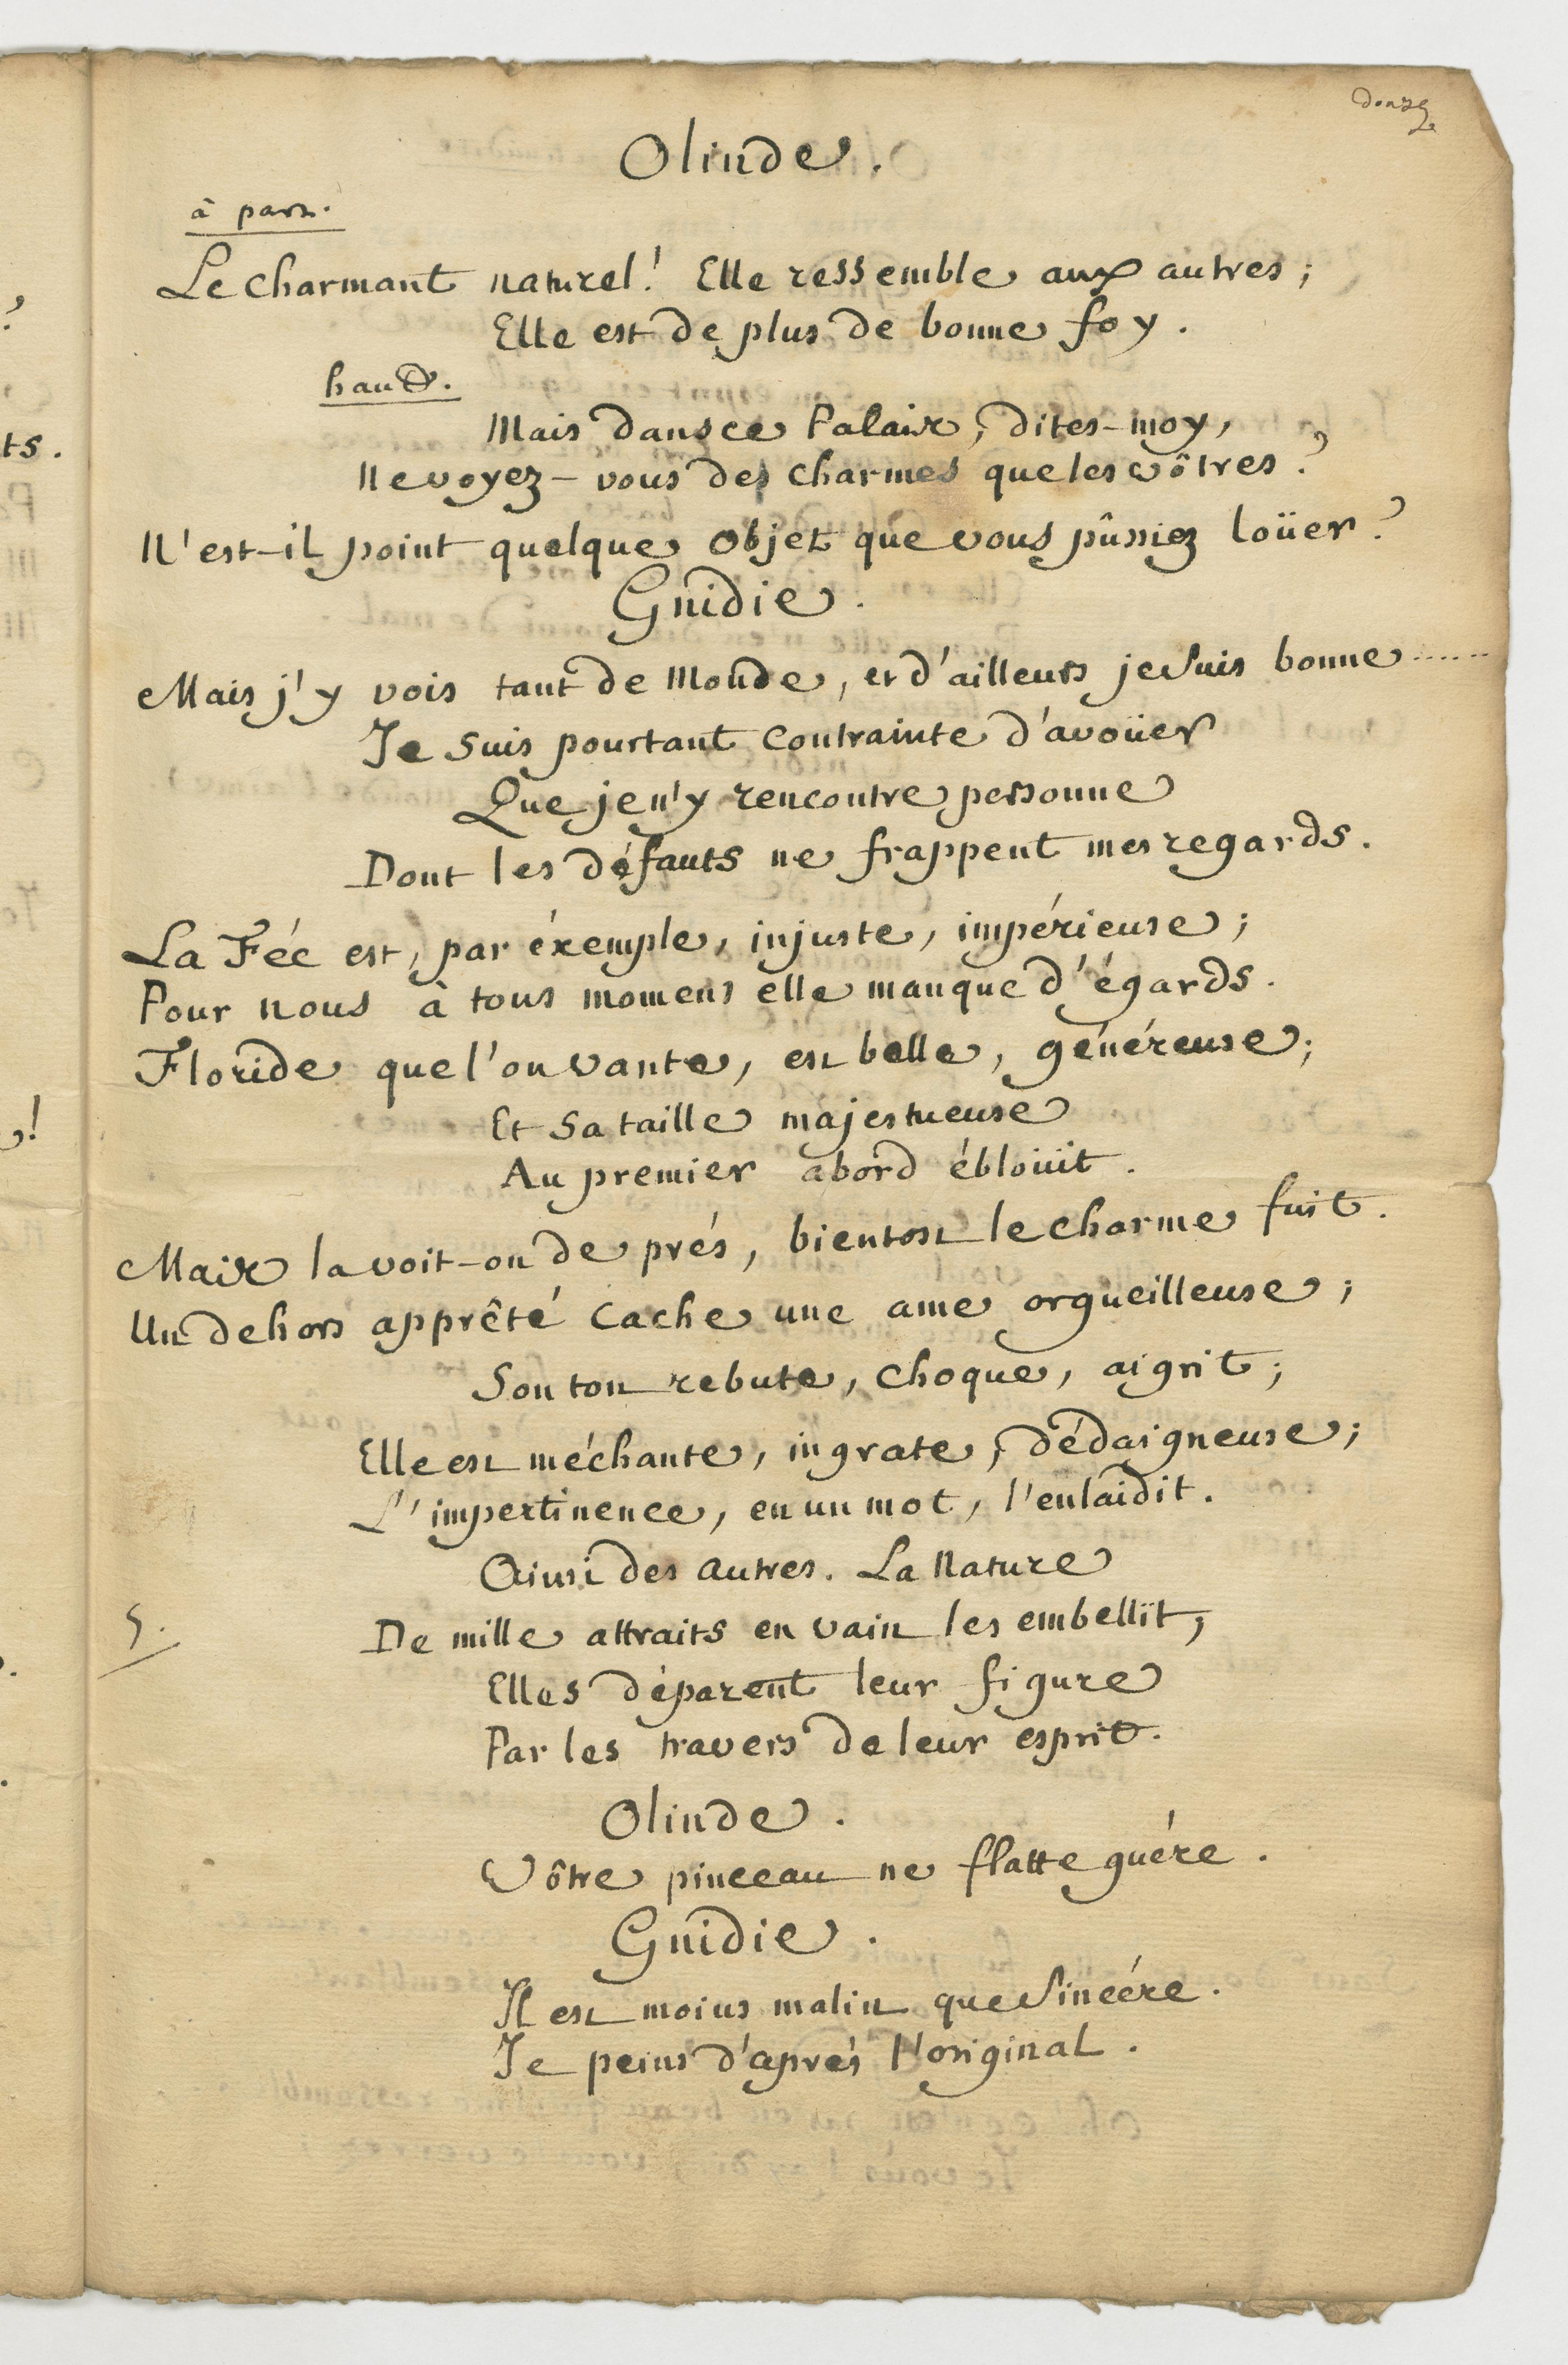 douze
Olinde.
à part.
Le charmant naturel! Elle ressemble aux autres;
Elle est de plus de bonne foy.
haut.
Mais dans ce Palais, dites-moy,
Ne voyez-vous des charmes que les vôtres?
N'est-il point quelque objet que vous pûssiez loüer?
Gnidie.
Mais j'y vois tant de Monde, et d'ailleurs je suis bonne......
Je suis pourtant contrainte d'avoüer
Que je n'y rencontre personne
Dont les défauts ne frappent mes regards.
La Fée est, par éxemple, injuste, impérieuse;
Pour nous à tous momens elle manque d'égards.
Floride que l'on vante, est belle, généreuse;
Et sa taille majestueuse
Au premier abord éblouit.
Mais la voit-on de prés, bientost le charme fuit.
Un dehors apprêté cache une ame orgueilleuse;
Son ton rebute, choque, aigrit;
Elle est méchante, ingrate, dédaigneuse;
L'impertinence, en un mot, l'enlaidit.
Ainsi des autres. La Nature
5.
De mille attraits en vain les embellit,
Elles déparent leur figure
Par les travers de leur esprit.
Olinde.
Vôtre pinceau ne flatte guére.
Gnidie.
Il est moins malin que sincére.
Je peins d'aprés l'original.